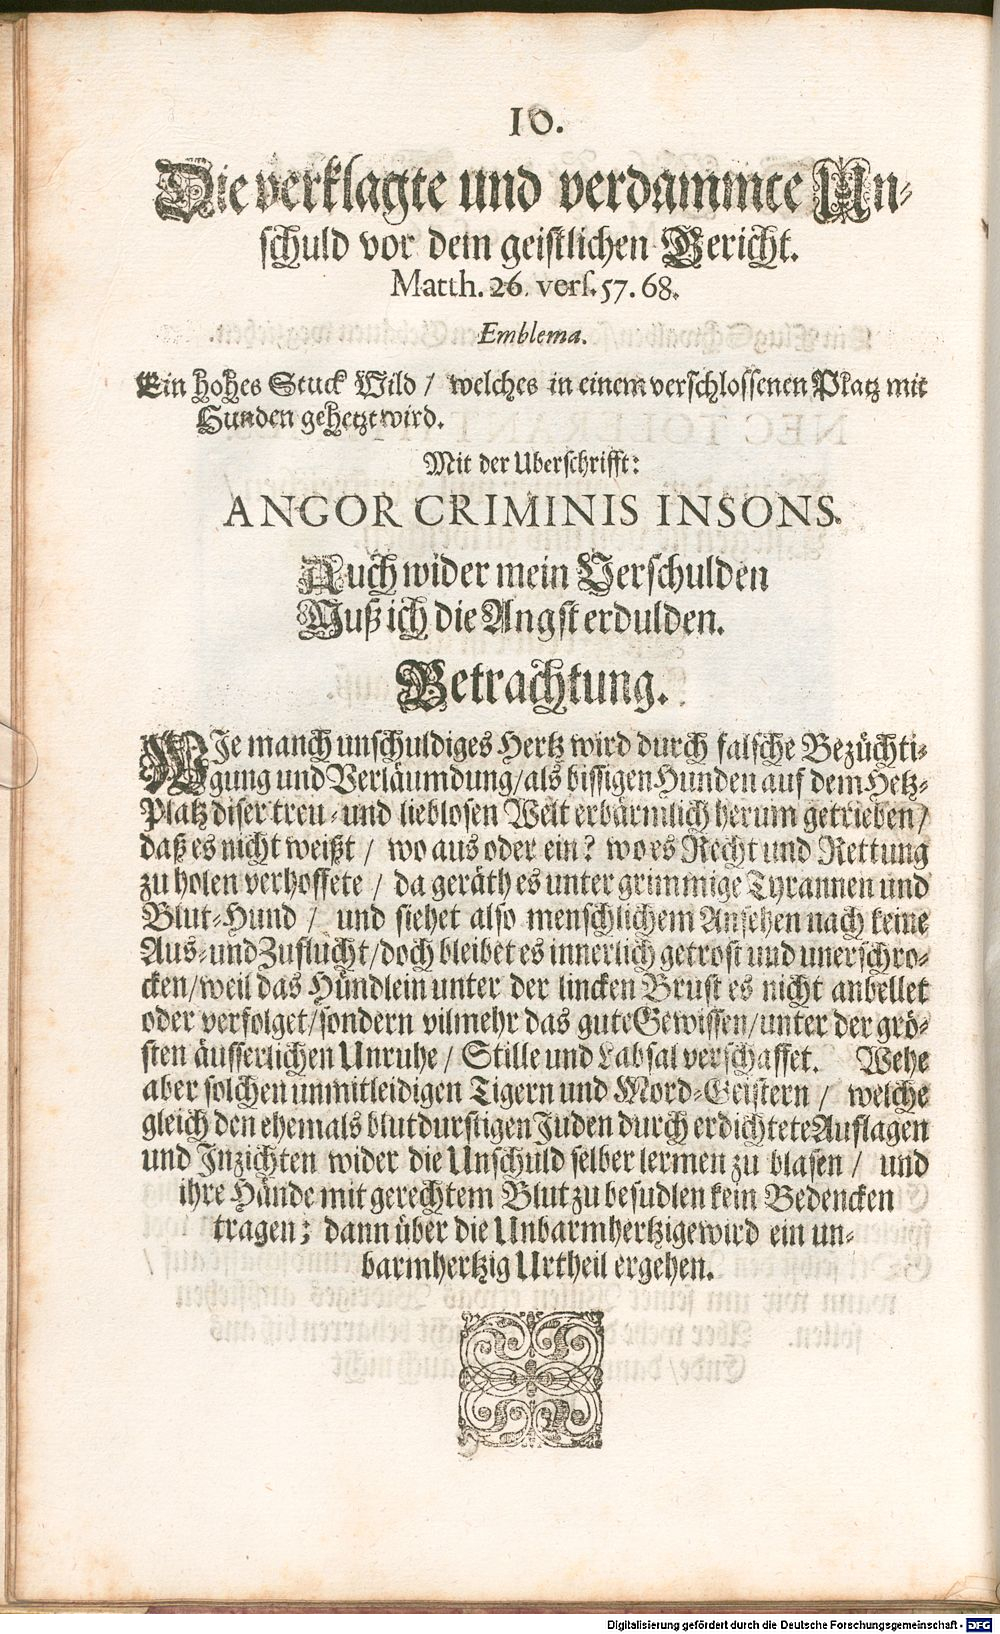 10.
Die verklagte und verdammte Un-
schuld vor dem geistlichen Gericht.
Matth. 26. vers. 57. 68.
Emblema.
Ein hohes Stuck Wild / welches in einem verschlossenen Platz mit
Hunden gehetzt wird.
Mit der Uberschrifft:
ANGOR CRIMINIS INSONS.
Auch wider mein Verschulden
Muß ich die Angst erdulden.
Betrachtung.
WIe manch unschuldiges Hertz wird durch falsche Bezüchti-
gung und Verläumdung / als bissigen Hunden auf dem Hetz-
Platz diser treu- und lieblosen Welt erbärmlich herum getrieben /
daß es nicht weißt / wo aus oder ein? wo es Recht und Rettung
zu holen verhoffete / da geräth es unter grimmige Tyrannen und
Blut-Hund / und siehet also menschlichem Ansehen nach keine
Aus- und Zuflucht / doch bleibet es innerlich getrost und unerschro-
cken / weil das Hündlein unter der lincken Brust es nicht anbellet
oder verfolget / sondern vilmehr das gute Gewissen / unter der grö-
sten äusserlichen Unruhe / Stille und Labsal verschaffet. Wehe
aber solchen unmitleidigen Tigern und Mord-Geistern / welche
gleich den ehemals blutdurstigen Juden durch erdichtete Auflagen
und Inzichten wider die Unschuld selber lermen zu blasen / und
ihre Hände mit gerechtem Blut zu besudlen kein Bedencken
tragen; dann über die Unbarmhertzige wird ein un-
barmhertzig Urtheil ergehen.
Digitalisierung gefördert durch die Deutsche Forschungsgemeinschaft - DFG